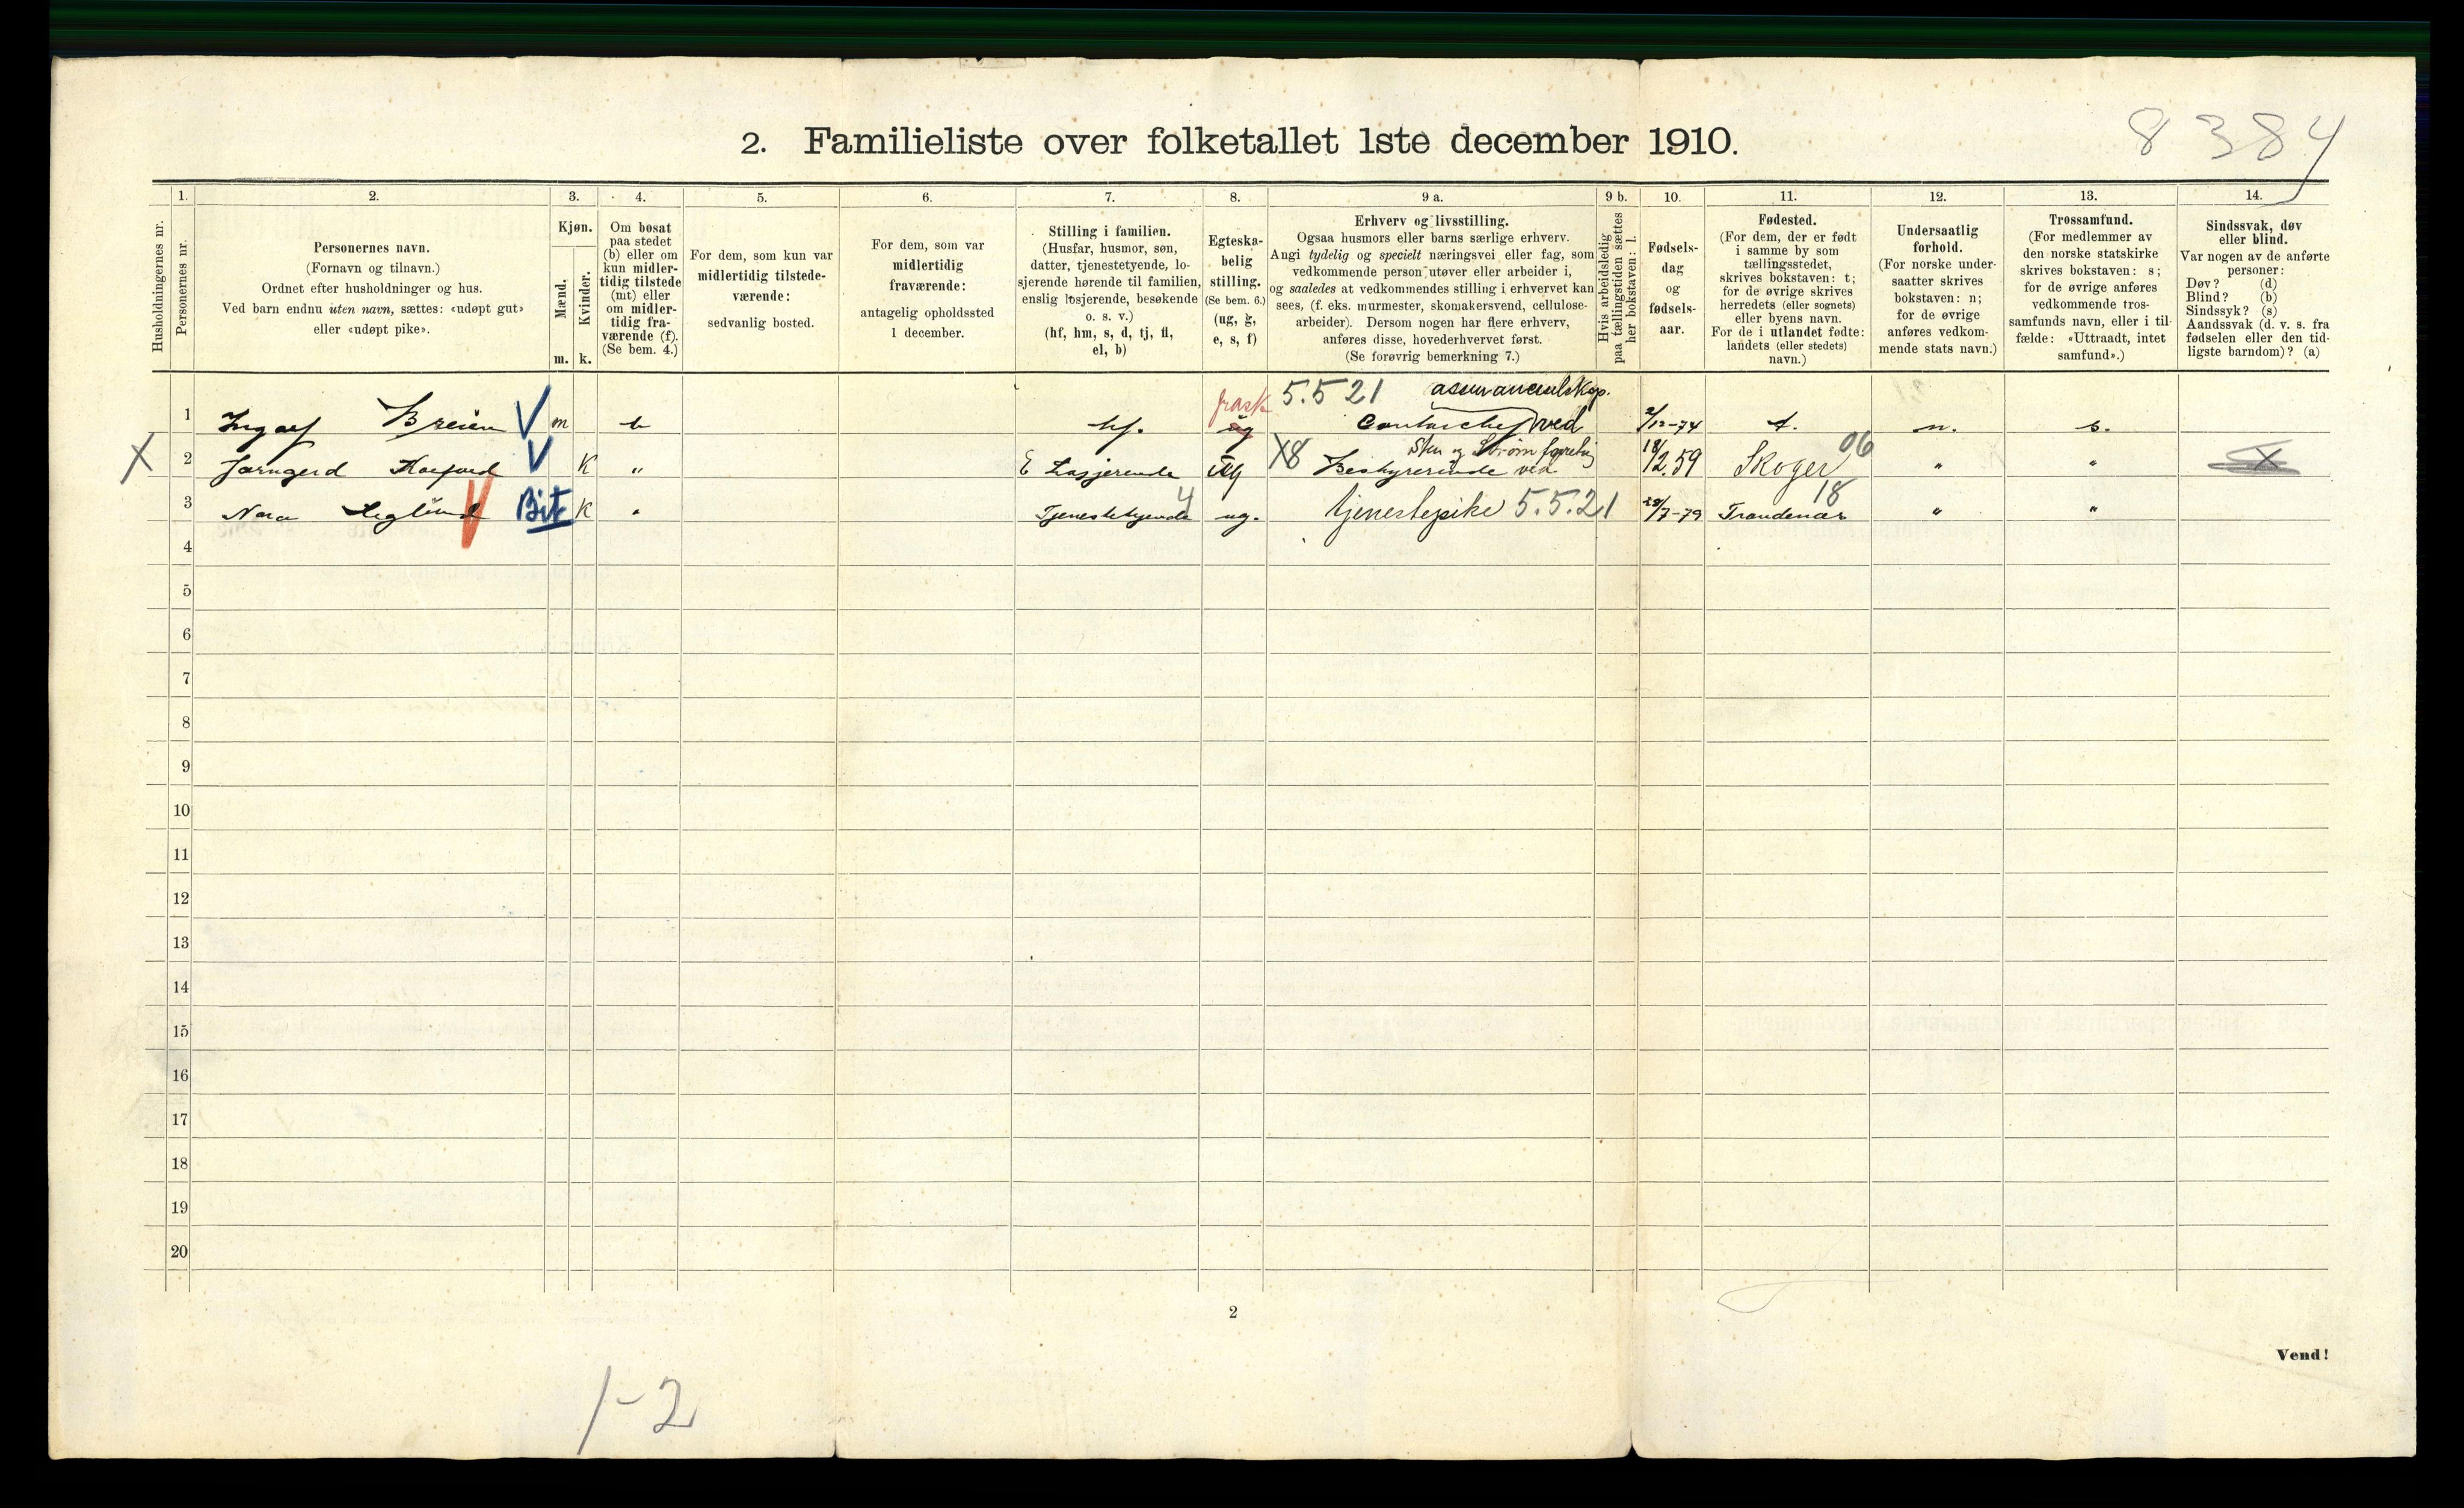 8 384
2. Familieliste over folketallet 1ste december 1910.
1. 2. 3. 4. 5. 6. 7. 8. 9 a. 9 b. 10. 11. 12. 13. 14.
Husholdningernes nr.
Personernes nr.
Personernes navn.
(Fornavn og tilnavn.)
Ordnet efter husholdninger og hus.
Ved barn endnu uten navn, sættes: «udøpt gut»
eller «udøpt pike».
Kjøn.
Mænd.
Kvinder.
m. k.
Om bosat
paa stedet
(b) eller om
kun midler-
tidig tilstede
(mt) eller
om midler-
tidig fra-
værende (f).
(Se bem. 4.)
For dem, som kun var
midlertidig tilstede-
værende:
sedvanlig bosted.
For dem, som var
midlertidig
fraværende:
antagelig opholdssted
1 december.
Stilling i familien.
(Husfar, husmor, søn,
datter, tjenestetyende, lo-
sjerende hørende til familien,
enslig losjerende, besøkende
o. s. v.)
(hf, hm, s, d, tj, fl,
el, b)
Egteska-
belig
stilling.
(Se bem. 6.)
(ug, g,
e, s, f)
Erhverv og livsstilling.
Ogsaa husmors eller barns særlige erhverv.
Angi tydelig og specielt næringsvei eller fag, som
vedkommende person utøver eller arbeider i,
og saaledes at vedkommendes stilling i erhvervet kan
sees, (f. eks. murmester, skomakersvend, cellulose-
arbeider). Dersom nogen har flere erhverv,
anføres disse, hovederhvervet først.
(Se forøvrig bemerkning 7.)
Hvis arbeidsledig
paa tællingstiden sættes
her bokstaven: l.
Fødsels-
dag
og
fødsels-
aar.
Fødested.
(For dem, der er født
i samme by som
tællingsstedet,
skrives bokstaven: t;
for de øvrige skrives
herredets (eller sognets)
eller byens navn.
For de i utlandet fødte:
landets (eller stedets)
navn.)
Undersaatlig
forhold.
(For norske under-
saatter skrives
bokstaven: n;
for de øvrige
anføres vedkom-
mende stats navn.)
Trossamfund.
(For medlemmer av
den norske statskirke
skrives bokstaven: s;
for de øvrige anføres
vedkommende tros-
samfunds navn, eller i til-
fælde: «Uttraadt, intet
samfund».)
Sindssvak, døv
eller blind.
Var nogen av de anførte
personer:
Døv? (d)
Blind? (b)
Sindssyk? (s)
Aandssvak (d. v. s. fra
fødselen eller den tid-
ligste barndom)? (a)
5.5 21
frask
1 Breien V m b hf. ug ved 2/12-74 t. n. s.
X 2 V K " E Losjerende Ug X8 Bestyrerinde ved 18/2.59 Skoger 06 " "
3 Nora V Bit K " Tjenestetyende 4 ug. tjenestepike 5.5.21 28/7-79 Trondenæs 18 " "
4
5
6
7
8
9
10
11
12
13
14
15
16
17
18
19
20
2
Vend!
1-2